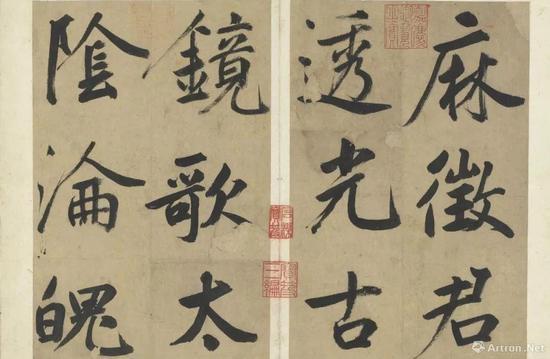 麻徵君
透光古
鏡歌太
陰淪魄
Artron.Net